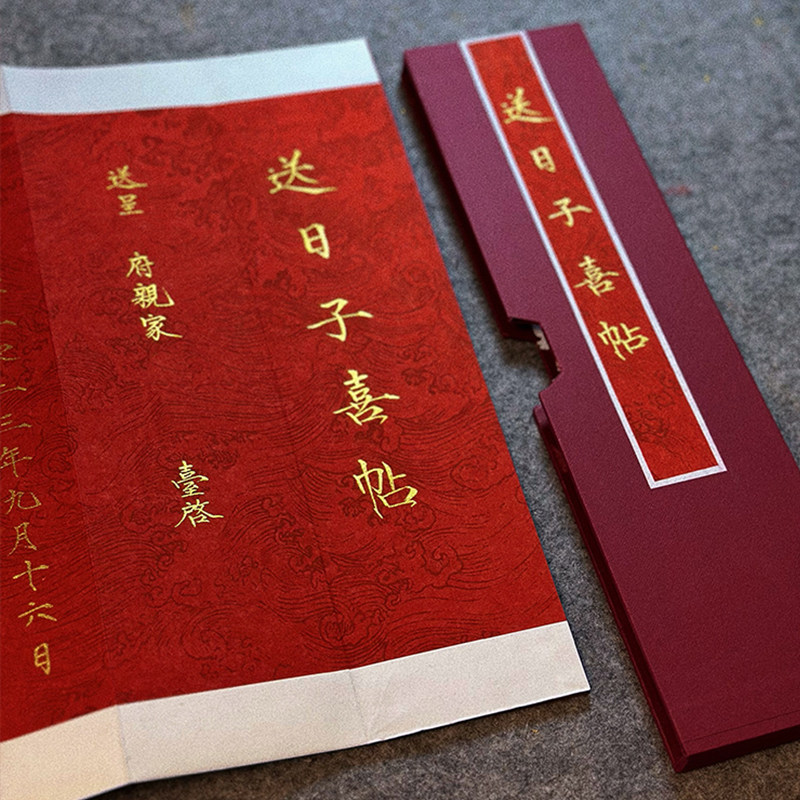 送日子喜帖
送日子喜帖
送呈 府親家 臺啓
三年九月十六日